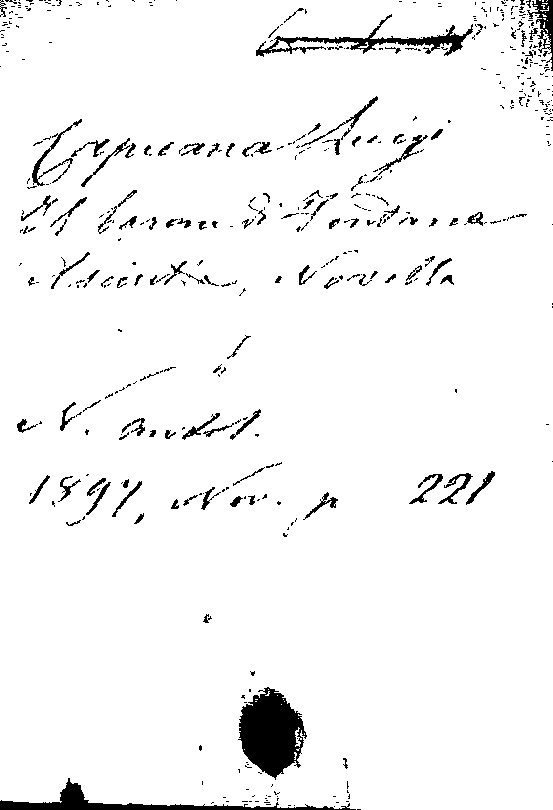 Capuana Luigi
Il barone di Fontana
Asciutta, Novella
N. Antol.
1897, Nov. p 221